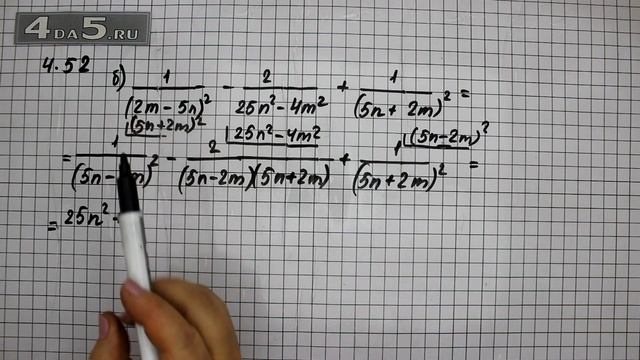 4DA5.RU
4.52 б) 1/(2m-5n)² - 2/25n²-4m² + 1/(5n+2m)² =
= 1 (5n+2m)²/(5n-m)² - 2 25n²-4m²/(5n-2m)(5n+2m) + 1 (5n-2m)²/(5n+2m)² =
= 25n²